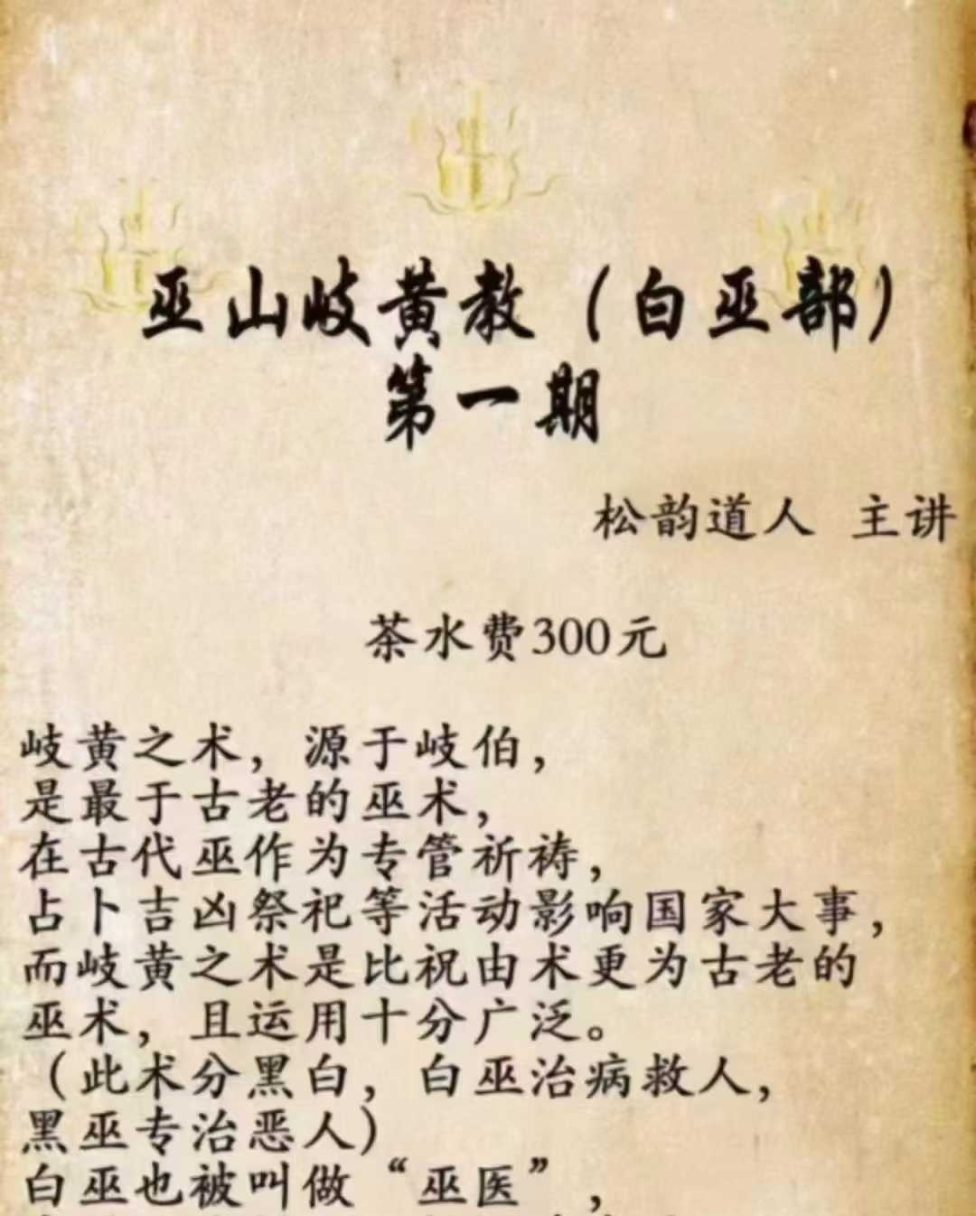 巫山岐黄教（白巫部）
第一期
松韵道人 主讲
茶水费300元
岐黄之术，源于岐伯，
是最于古老的巫术，
在古代巫作为专管祈祷，
占卜吉凶祭祀等活动影响国家大事，
而岐黄之术是比祝由术更为古老的
巫术，且运用十分广泛。
（此术分黑白，白巫治病救人，
黑巫专治恶人）
白巫也被叫做“巫医”，